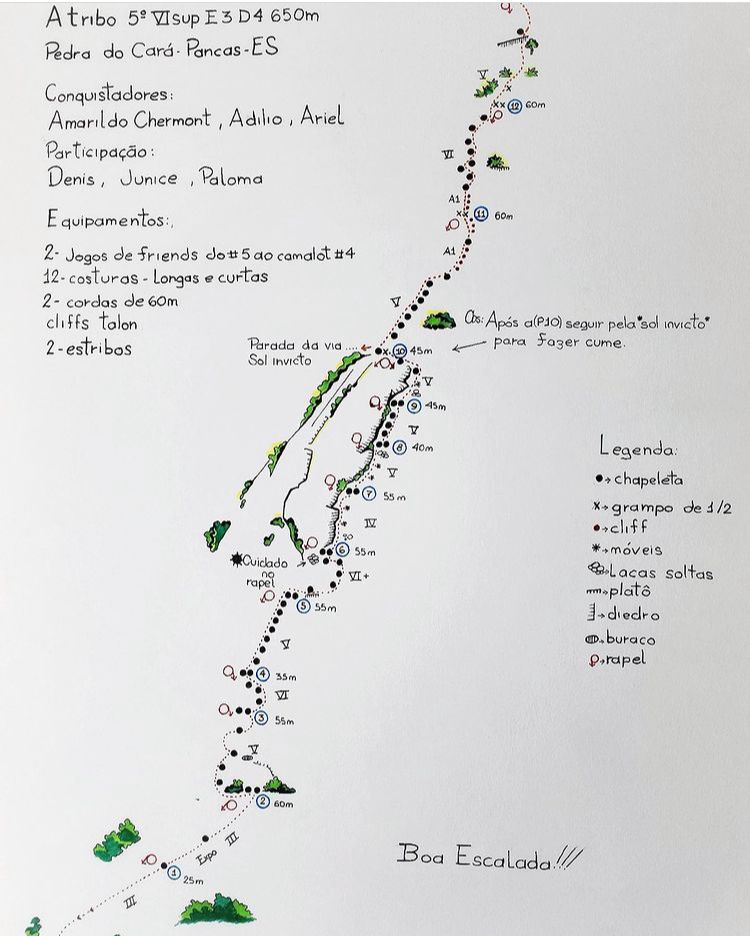 A tribo 5º VIsup E3 D4 650m
Pedra do Cará-Pancas-ES
Conquistadores:
Amarildo Chermont, Adilio, Ariel
Participação:
Denis, Junice, Paloma
Equipamentos:
2- Jogos de friends do #5 ao camalot #4
12-costuras - Longas e curtas
2- cordas de 60m
cliffs talon
2-estribos
V
xx 12 60m
VI
A1
xx 11 60m
A1
V
Obs: Após a(P10) seguir pela "sol invicto"
para fazer cume.
Parada da via ....
Sol invicto
x 10 45m
V
9 45m
V
8 40m
V
7 55m
IV
6 55m
Cuidado
no
rapel
VI+
5 55m
V
4 35m
VI
3 55m
V
2 60m
Expo III
1 25m
III
Legenda:
chapeleta
x→grampo de 1/2
cliff
*→móveis
Lacas soltas
platô
diedro
buraco
rapel
Boa Escalada!!!